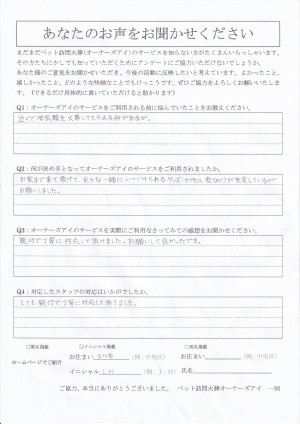 あなたのお声をお聞かせください
まだまだペット訪問火葬(オーナーズアイ)のサービスを知らない方がたくさんいらっしゃいます。
その方たちに少しでも知っていただくためにアンケートにご協力いただけないでしょうか。
あなた様のご意見をお聞かせいただき、今後の活動に反映したいと考えています。よかったこと、
嬉しかったこと、どのような些細なことでもけっこうです、ぜひご協力をよろしくお願いいたしま
す。(できるだけ具体的に書いていただけると助かります)
Q1:オーナーズアイのサービスをご利用される前に悩んでいたことをお教えください。
近くで
を火葬してもらえる所があるか。
Q2:何が決め手となってオーナーズアイのサービスをご利用されましたか。
お家まで来て頂けて、
一緒に
が充実しているので
お願いしました。
Q3:オーナーズアイのサービスを実際にご利用なさってみての感想をお聞かせください。
親切で丁寧に対応して頂けました。お願いして良かったです。
Q4:対応したスタッフの対応はいかがでしたか。
とても親切で丁寧に対応して頂きました。
□匿名掲載 ☑イニシャル掲載 □実名掲載
ホームページでご紹介
お住まい (例:中央区) お住まい (例:中央区)
イニシャル I.H (例:J.M) 氏名
ご協力、本当にありがとうございました。 ペット訪問火葬オーナーズアイ